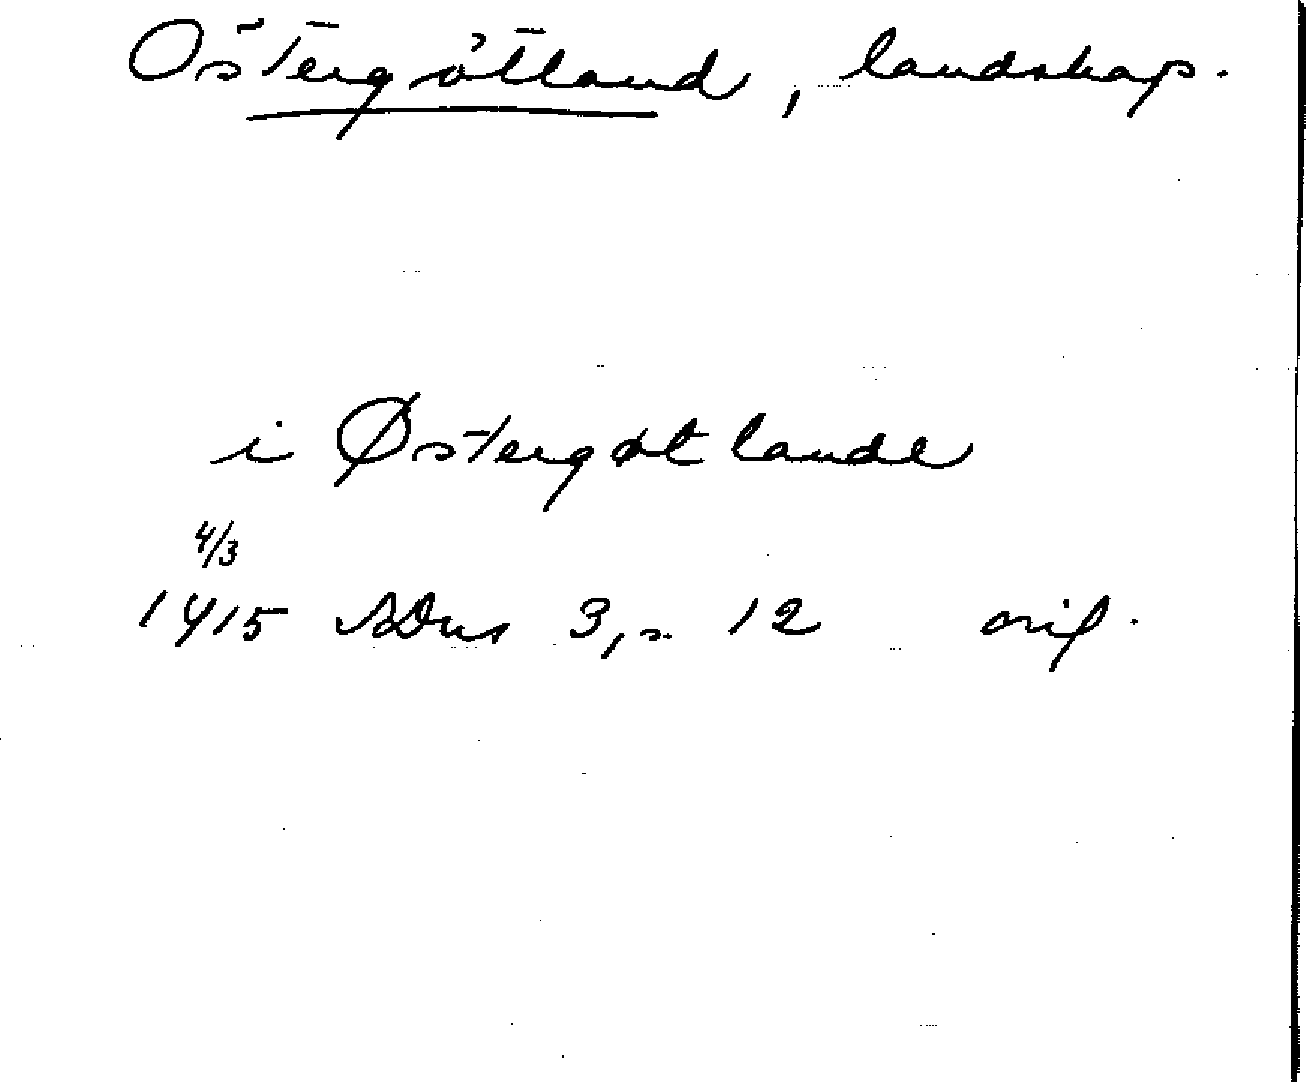 Östergötland, landskap.
i Østergøtlande
4/3
1415 SDns 3, s. 12 orig.